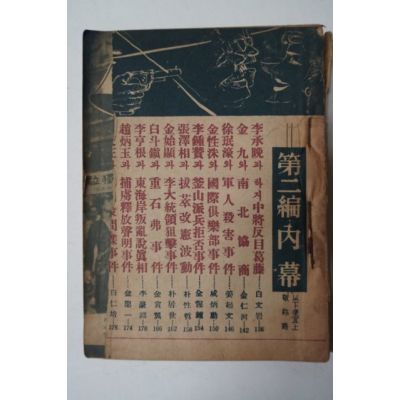 第二編 內幕
李承晩과 하지中將反目葛藤 白文岩 136
金九와 南北協商 金仁河 142
徐珉濠와 軍人殺害事件 姜起文 146
金性洙와 國際俱樂部事件 成炳勳 150
李鍾贊과 釜山派兵拒否事件 154
張澤相과 拔萃改憲波動 朴性哲 158
金始顯과 李大統領狙擊事件 朴居世 162
白斗鎭과 重石弗事件 166
李亨根과 東海岸叛亂說眞相
趙炳玉과 捕虜釋放聲明事件 金龍一 174
間諜事件 白仁培 178